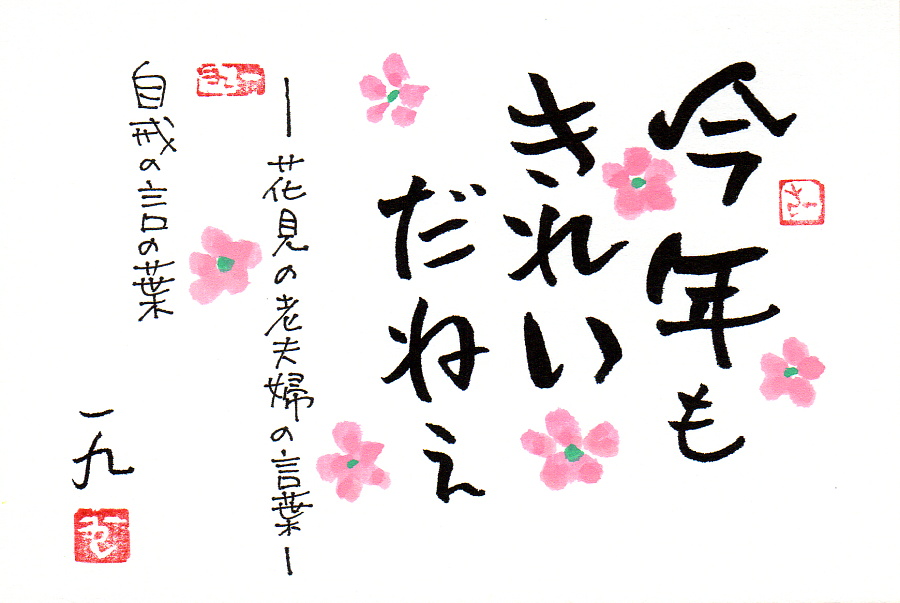 今年も
きれい
だねえ
―花見の老夫婦の言葉―
自戒の言の葉
一九